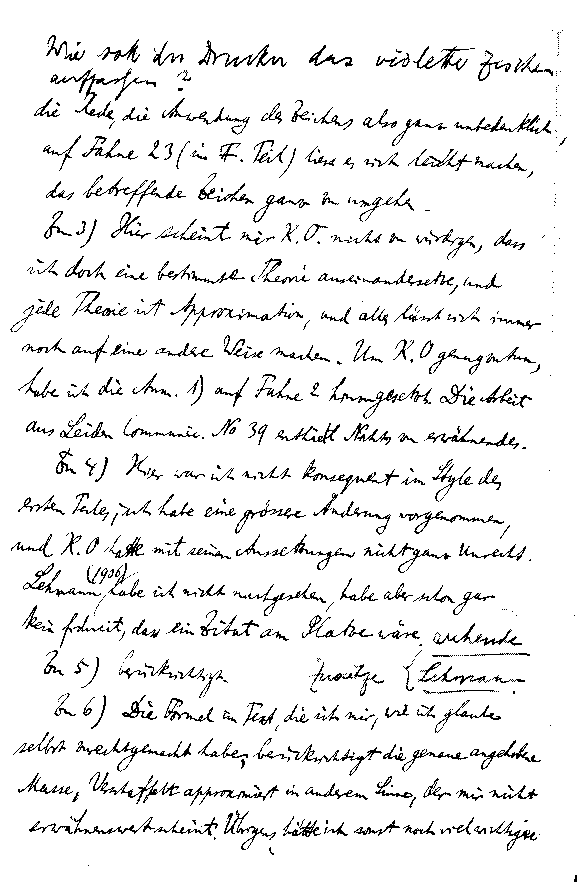 Wie soll der Drucker das violette Zeichen
auffassen?
die Rede, die Anwendung des Zeichens also ganz unbedenklich,
auf Fahne 23 (im II. Teil) liess es sich leicht machen,
das betreffende Zeichen ganz zu umgehen.
Zu 3) Hier scheint mir K.O. nichts zu würdigen, dass
ich doch eine bestimmte Theorie auseinandersetze, und
jede Theorie ist Approximation, und alles lässt sich immer
noch auf eine andere Weise machen. Um K.O genugzutun,
habe ich die Anm. 1) auf Fahne 2 hinzugesetzt. Die Arbeit
aus Leiden Communic. No 39 enthält Nichts zu erwähnendes.
Zu 4) Hier war ich nicht konsequent im Style des
ersten Teiles, ich habe eine grössere Änderung vorgenommen,
und K.O hatte mit seinen Aussetzungen nicht ganz Unrecht.
Lehmann (1906) habe ich nicht nachgesehen, habe aber schon gar
kein, dass ein Zitat am Platze wäre. siehende
Zu 5) berücksichtigt Zusätze { Lehman
Zu 6) Die Formel im Text, die ich mir, wie ich glaube
selbst zurechtgemacht habe, berücksichtigt die genaue angehobene
Masse, Verschaffelt approximiert in anderem Sinne, der mir nicht
erwähnenswert scheint. Übrigens hätte ich sonst noch viel wichtigere